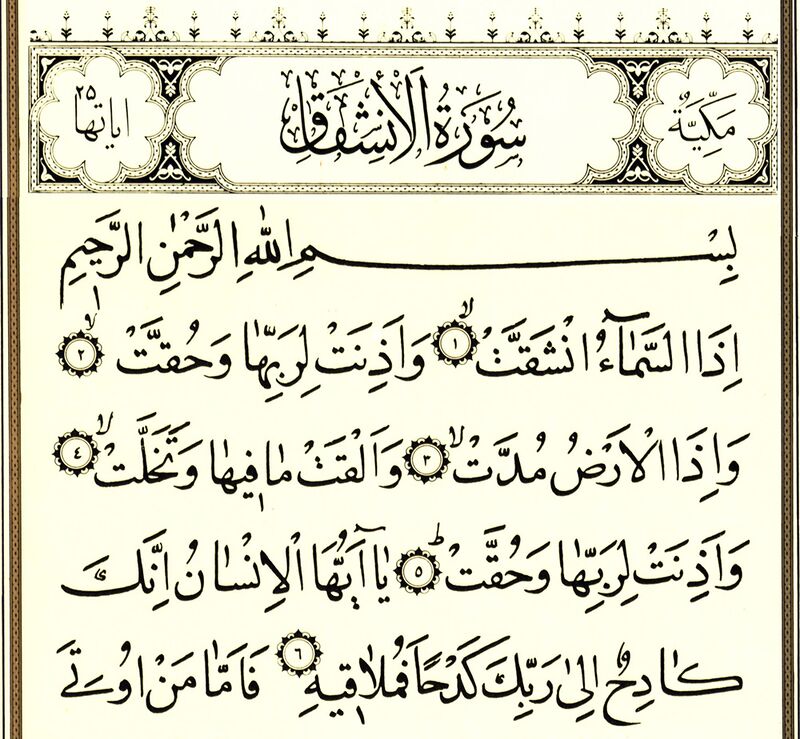 مَكِّيَّةٌ
سُورَةُ الْاِنْشِقَاقِ
اٰيَاتُهَا ٢٥
بِسْمِ اللّٰهِ الرَّحْمٰنِ الرَّحٖيمِ
اِذَا السَّمَٓاءُ انْشَقَّتْۙ ﴿١﴾ وَاَذِنَتْ لِرَبِّهَا وَحُقَّتْۙ ﴿٢﴾
وَاِذَا الْاَرْضُ مُدَّتْۙ ﴿٣﴾ وَاَلْقَتْ مَا فٖيهَا وَتَخَلَّتْۙ ﴿٤﴾
وَاَذِنَتْ لِرَبِّهَا وَحُقَّتْۜ ﴿٥﴾ يَٓا اَيُّهَا الْاِنْسَانُ اِنَّكَ
كَادِحٌ اِلٰى رَبِّكَ كَدْحًا فَمُلَاقٖيهِ ﴿٦﴾ فَاَمَّا مَنْ اُو۫تِيَ